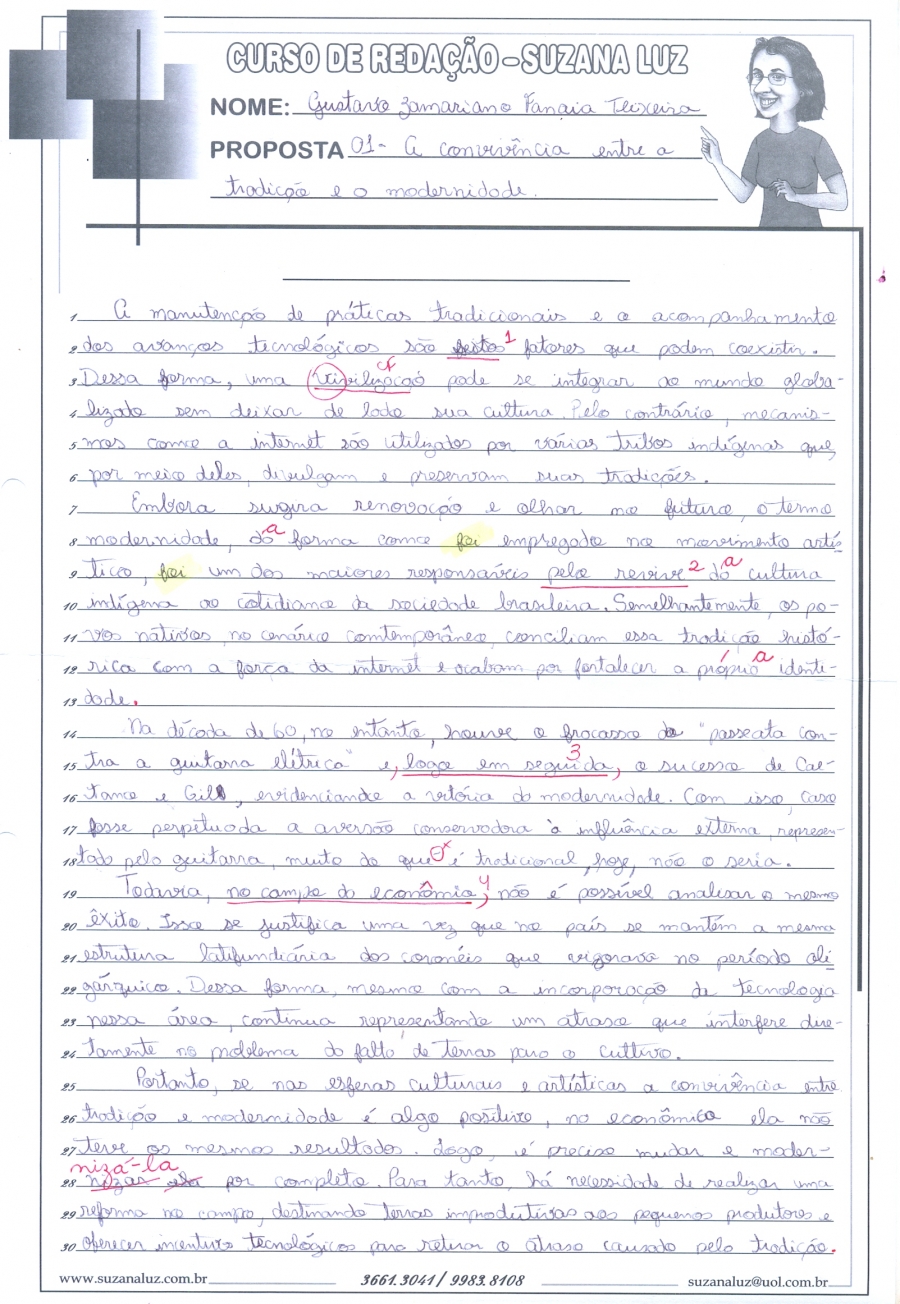 CURSO DE REDAÇÃO - SUZANA LUZ
NOME: Gustavo Zamariano Fanaia Teixeira
PROPOSTA 01- A convivência entre a
tradição e a modernidade.
1 A manutenção de práticas tradicionais e o acompanhamento
2 dos avanços tecnológicos são fatores que podem coexistir. 1
3 Dessa forma, uma civilização pode se integrar ao mundo globa-
4 lizado sem deixar de lado sua cultura. Pelo contrário, mecanis-
5 mos como a internet são utilizados por várias tribos indígenas que,
6 por meio deles, divulgam e preservam suas tradições.
7 Embora sugira renovação e olhar no futuro, o termo
8 modernidade, da forma como foi empregado no movimento artís
9 tico, foi um dos maiores responsáveis pelo revive 2 da cultura
10 indígena ao cotidiano da sociedade brasileira. Semelhantemente, os po-
11 vos nativos, no cenário contemporâneo, conciliam essa tradição histó-
12 rica com a força da internet e acabam por fortalecer a própria identi-
13 dade.
14 Na década de 60, no entanto, houve o fracasso da "passeata con-
15 tra a guitarra elétrica" e, logo em seguida, 3 o sucesso de Cae-
16 tano e Gil, evidenciando a vitória da modernidade. Com isso, caso
17 fosse perpetuada a aversão conservadora à influência externa, represen-
18 tada pela guitarra, muito do que é tradicional, hoje, não o seria.
19 Todavia, no campo da econômia, 4 não é possível analisar o mesmo
20 êxito. Isso se justifica uma vez que no país se mantém a mesma
21 estrutura latifundiária dos coronéis que vigorava no período oli
22 gárquico. Dessa forma, mesmo com a incorporação da tecnologia
23 nessa área, continua representando um atraso que interfere dire-
24 tamente no problema da falta de terras para o cultivo.
25 Portanto, se nas esferas culturais e artísticas a convivência entre
26 tradição e modernidade é algo positivo, no econômico ela não
27 teve os mesmos resultados. Logo, é preciso mudar e moder-
nizá-la
28 nizar ela por completo. Para tanto, há necessidade de realizar uma
29 reforma no campo, destinando terras improdutivas aos pequenos produtores e
30 oferecer incentivos tecnológicos para retirar o atraso causado pela tradição.
www.suzanaluz.com.br 3661.3041 / 9983.8108 suzanaluz@uol.com.br